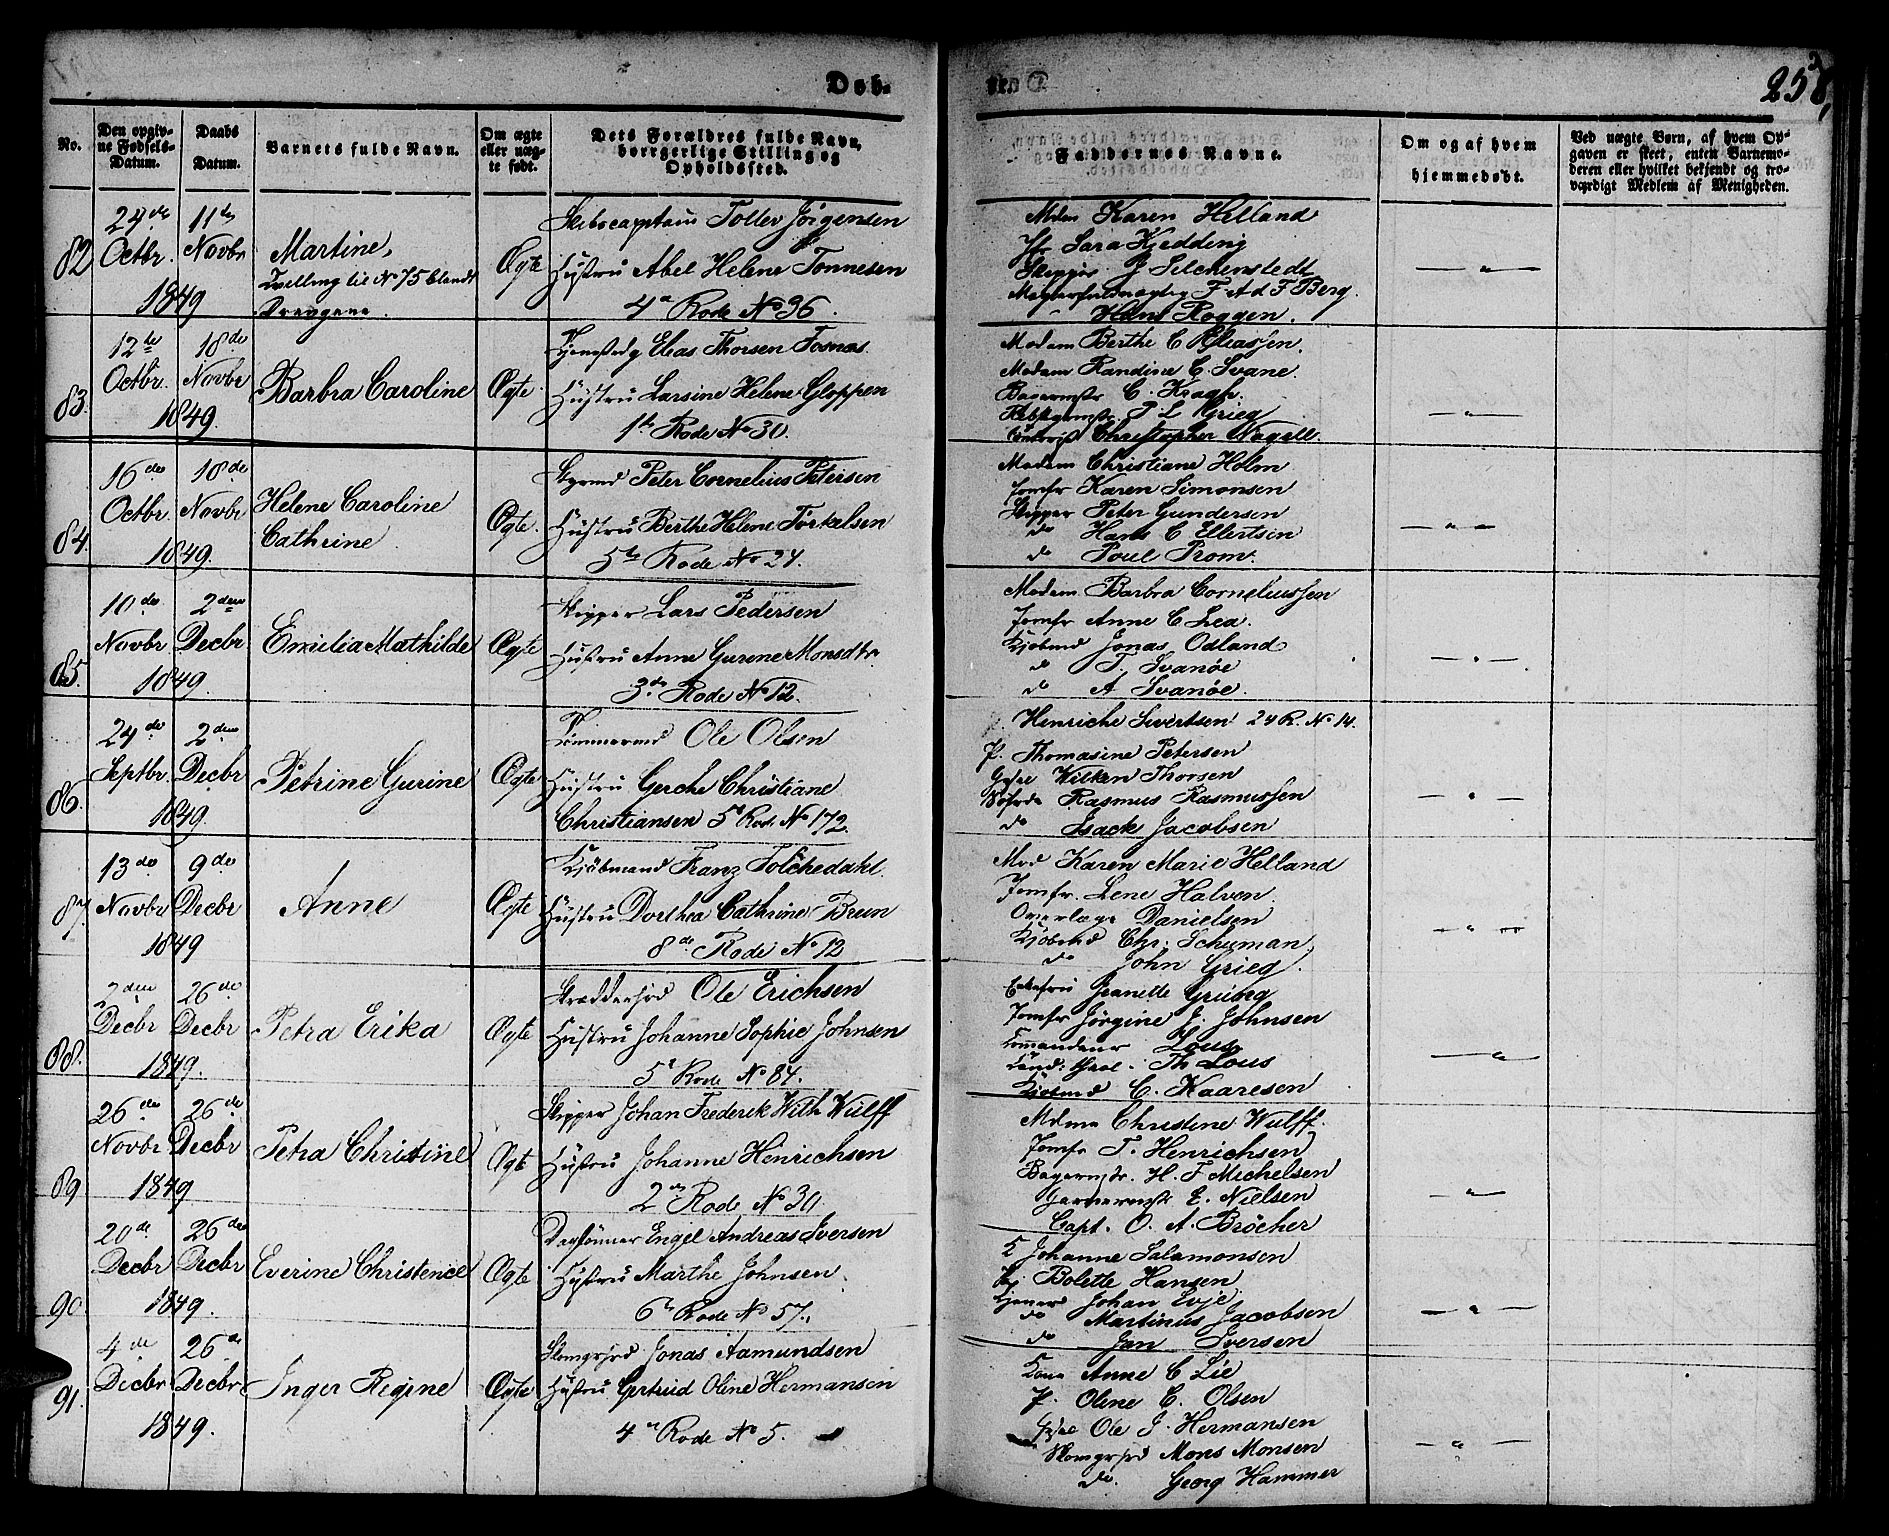 Døb-
258
No.
Den opgiv-
ne Fødsels-
Datum.
Daabs
Datum.
Barnets fulde Navn.
Om ægte
eller uæg-
te født.
Dets Forældres fulde Navn,
borrgerlige Stilling og
Opholdssted.
Faddernes Navne.
Om og af hvem
hjemmedøbt.
Ved uægte Børn, af hvem Op-
gaven er skeet, enten Barnemo-
deren eller hvilket bekjendt og tro-
værdigt Medlem af Menigheden.
82
24de Octbr. 1849
11te Novbr
Martine,
Tvelling til No 75 blandt
Drengene.
Ægte
Skibscapitain Toller Jörgensen
Hustru Abel Helene Tönnesen
4 Rode No 96.
Mdm Karen Helland
Jfr Sara Kjedding
Skipper J Silchenstedt
Mæglerfuldmægtig F. A d F Berg.
Hans Roggen.
83.
12te Octbr. 1849.
18de Novbr
Barbra Caroline
Ægte.
Elias Thorsen Fosnæs.
Hustru Larsine Helene Gloppen
1te Rode No 30.
Madam Berthe C Eliassen.
Madam Randine C. Svane.
Bagermstr C. Kragh.
P L Grieg
Christopher Nagell.
84.
16de Octbr. 1849.
18de Novbr
Helene Caroline
Cathrine
Ægte.
Styrmd Peter Cornelius Petersen
Hustru Berthe Helene Törkelsen
5te Rode No 24.
Madam Christiane Holm
Jomfr Karen Simonsen
Skipper Peter Gundersen
do Hans C Ellertsen
do Poul Prom.
85.
10de Novbr 1849.
2den Decbr
Emilia Mathilde
Ægte
Skipper Lars Pedersen
Hustru Anne Gurine Monsdtr.
3de Rode No 12.
Madam Barbra Corneliussen
Jomfr Anne C Lea.
Kjøbmd Jonas Odland
do T. Svanöe
do A Svanöe.
86.
24de Septbr. 1849.
2den Decbr
Petrine Gurine
Ægte
Tømmermd Ole Olsen
Hustru Gerche Christiane
Christiansen 5 Rod. No 172.
Henriche Sivertsen 24 R. No 14.
P. Thomasine Petersen
Wilken Thorsen
Rasmus Rasmussen
do Isack Jacobsen
87.
13de Novbr 1849
9de Decbr
Anne
Ægte
Kjöbmand Franz Tolchedahl.
Hustru Dorthea Cathrine Brun
8de Rode No 12
Mad Karen Marie Helland
Jomfr. Lene Halven.
Overlæge Danielsen
Kjøbmd Chr. Schuman.
do John Grieg.
88.
2den Decbr 1849.
26de Decbr
Petra Erika
Ægte
Ole Erichsen
Hustru Johanne Sophie Johnsen
5 Rode No 84.
Jeanette Grung
Jomfr Jörgine J. Johnsen
Commandeur Lous
Th Lous
Kjøbmd C. Kaaresen
89
26de Novbr 1849
26de Decbr
Petra Christine
Ægte
Skipper Johan Frederik With Wulff
Hustru Johanne Henrichsen
2den Rode No 30.
Mdme Christine Wulff.
Jomfr T. Henrichsen
Bagermstr. H. F Michelsen
E. Nielsen
Capt. O. A. Bröcher
90.
20de Decbr 1849.
26de Decbr
Everine Christence
Ægte
Engel Andreas Iversen
Hustru Marthe Johnsen.
6te Rode No 57.
K Johanne Salamonsen
Bolette Hansen
Johan Evje
do Martinus Jacobsen
do Jan Iversen
91.
4de Decbr 1849.
26de Decbr
Inger Regine
Ægte
Jonas Aamundsen
Hustru Gertrud Oline Hermansen
4 Rode No 5.
Kone Anne C Lie
P. Olene C. Olsen
Ole J. Hermansen
Mons Monsen
do. Georg Hammer